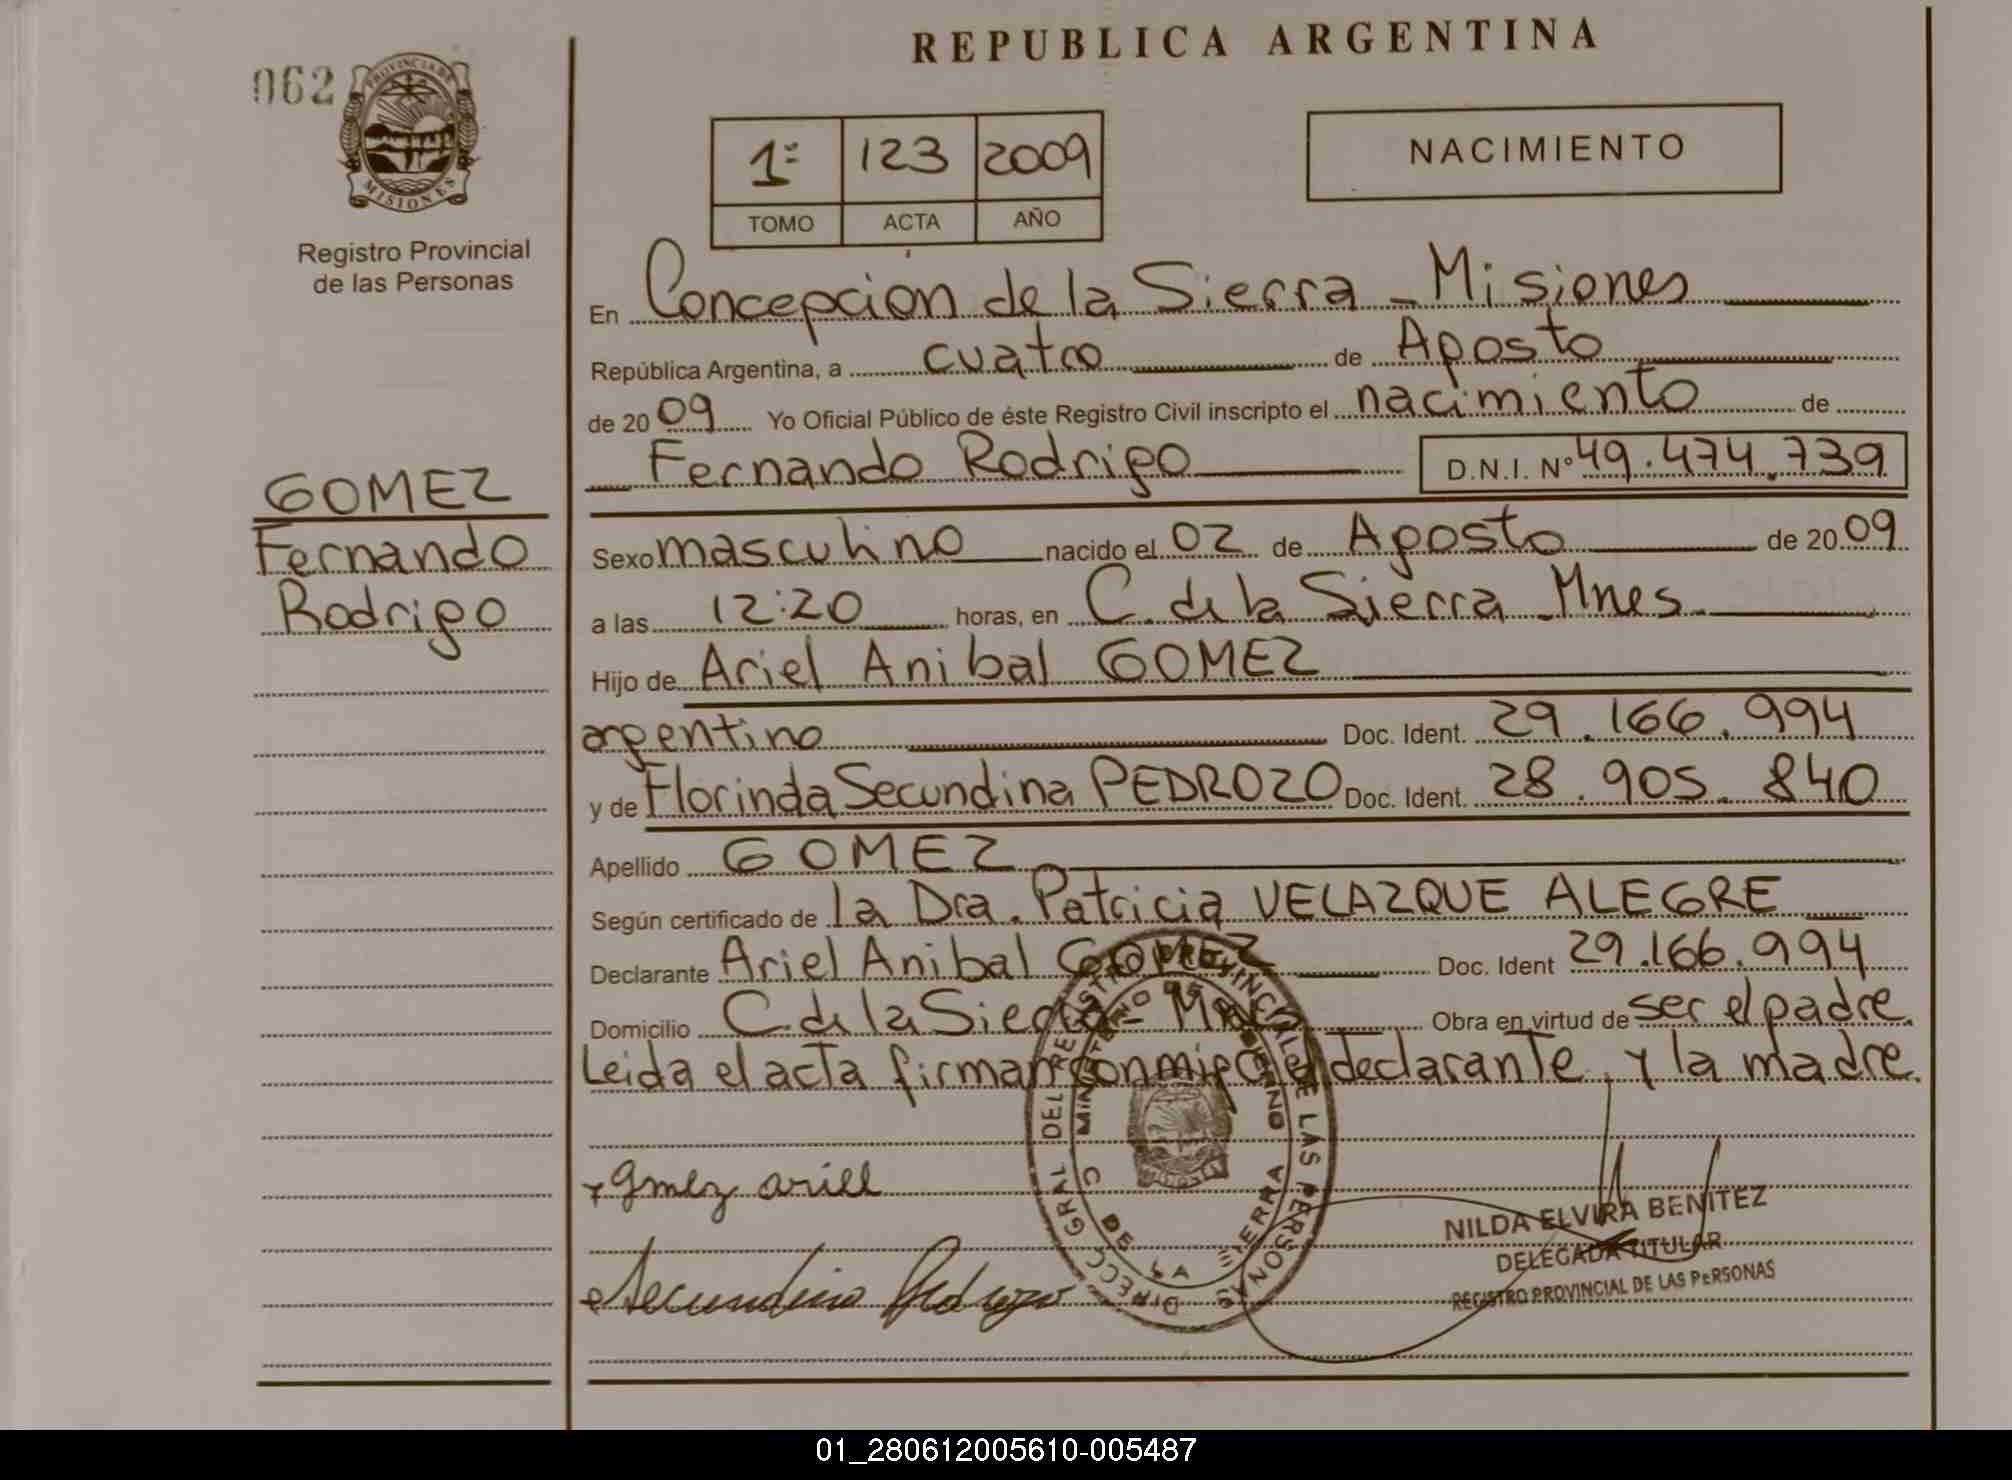 REPUBLICA ARGENTINA
062
PROVINCIA DE
MISIONES
Registro Provincial
de las Personas
1º 123 2009
TOMO ACTA AÑO
NACIMIENTO
En Concepción de la Sierra - Misiones
República Argentina, a cuatro de Agosto
de 2009 Yo Oficial Público de éste Registro Civil inscripto el nacimiento de
Fernando Rodrigo D.N.I. Nº 49.474.739
GOMEZ
Fernando
Rodrigo
Sexo masculino nacido el 02 de Agosto de 2009
a las 12:20 horas, en C. de la Sierra - Mnes.
Hijo de Ariel Anibal GOMEZ
argentino Doc. Ident. 29.166.994
y de Florinda Secundina PEDROZO Doc. Ident. 28.905.840
Apellido GOMEZ
Según certificado de la Dra. Patricia VELAZQUE ALEGRE
Declarante Ariel Anibal GOMEZ Doc. Ident 29.166.994
Domicilio C. de la Sierra - Mnes Obra en virtud de ser el padre.
Leida el acta firman conmigo el declarante y la madre.
gmez ariel
Secundina Pedrozo
DIRECC GRAL DEL REGISTRO PROVINCIAL DE LAS PERSONAS
MINISTERIO DE GOBIERNO
C DE LA SIERRA
NILDA ELVIRA BENITEZ
DELEGADA TITULAR
REGISTRO PROVINCIAL DE LAS PERSONAS
01_280612005610-005487